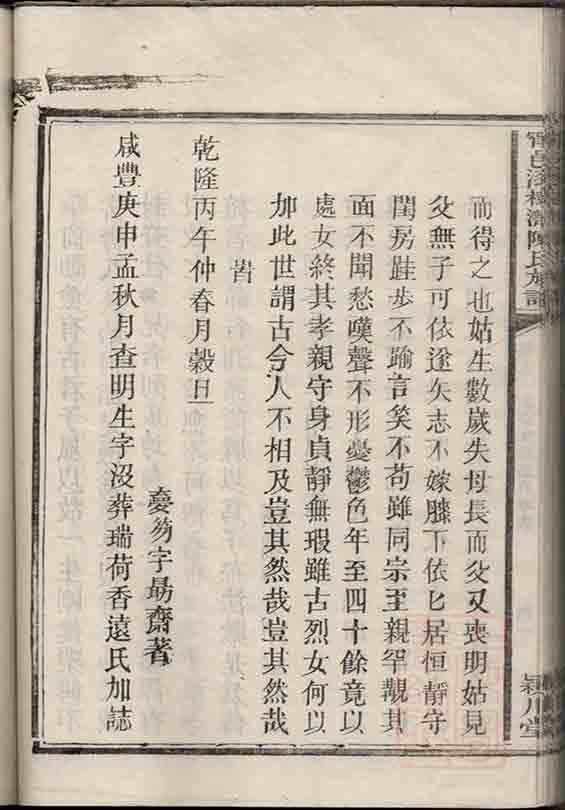 而得之也姑生數歲失母長而父又喪明姑見
父無子可依遂矢志不嫁膝下依匕居恒靜守
閨房跬步不踰言笑不苟雖同宗至親罕覯其
面不聞愁嘆聲不形憂鬱色年至四十餘竟以
處女終其孝親守身貞靜無瑕雖古烈女何以
加此世謂古今人不相及豈其然哉豈其然哉
旹
乾隆丙午仲春月穀旦
字勗齋著
咸豐庚申孟秋月查明生字沒葬瑞荷香遠氏加誌
陳氏族譜
潁川堂